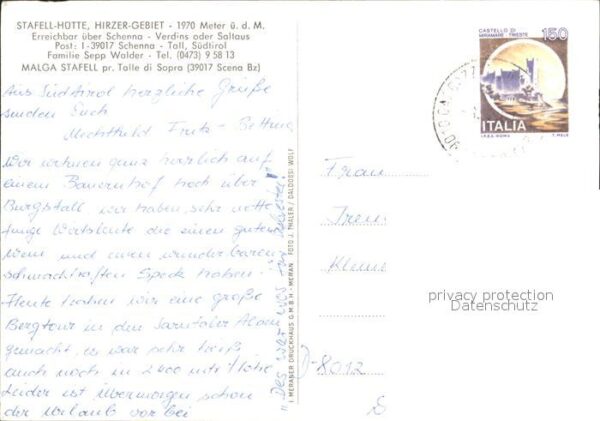 STAFELL-HÜTTE, HIRZER-GEBIET - 1970 Meter ü. d. M.
Erreichbar über Schenna - Verdins oder Saltaus
Post: I-39017 Schenna - Tall, Südtirol
Familie Sepp Walder - Tel. (0473) 9 58 13
MALGA STAFELL pr. Talle di Sopra (39017 Scena Bz)
Aus Südtirol herzliche Grüße
senden Euch
Mechthild Fritz - Bettina
Wir wohnen ganz herrlich auf
einem Bauernhof hoch über
Burgstall wir haben sehr nette
junge Wirtsleute die einen guten
Wein und einen wunderbaren
schmackhaften Speck haben!
Heute haben wir eine große
Bergtour in den Sarntaler Alpen
gemacht, es war sehr heiß
auch noch in 2400 mtr Höhe
Leider ist übermorgen schon
der Urlaub vorbei
"Des war was für
I. MERANER DRUCKHAUS G.M.B.H - MERAN FOTO J. THALER / DALDOSSI WOLF
CASTELLO DI
MIRAMARE - TRIESTE
150
ITALIA
I.P.Z.S. ROMA
Frau
Irene
D-8012
privacy protection
Datenschutz